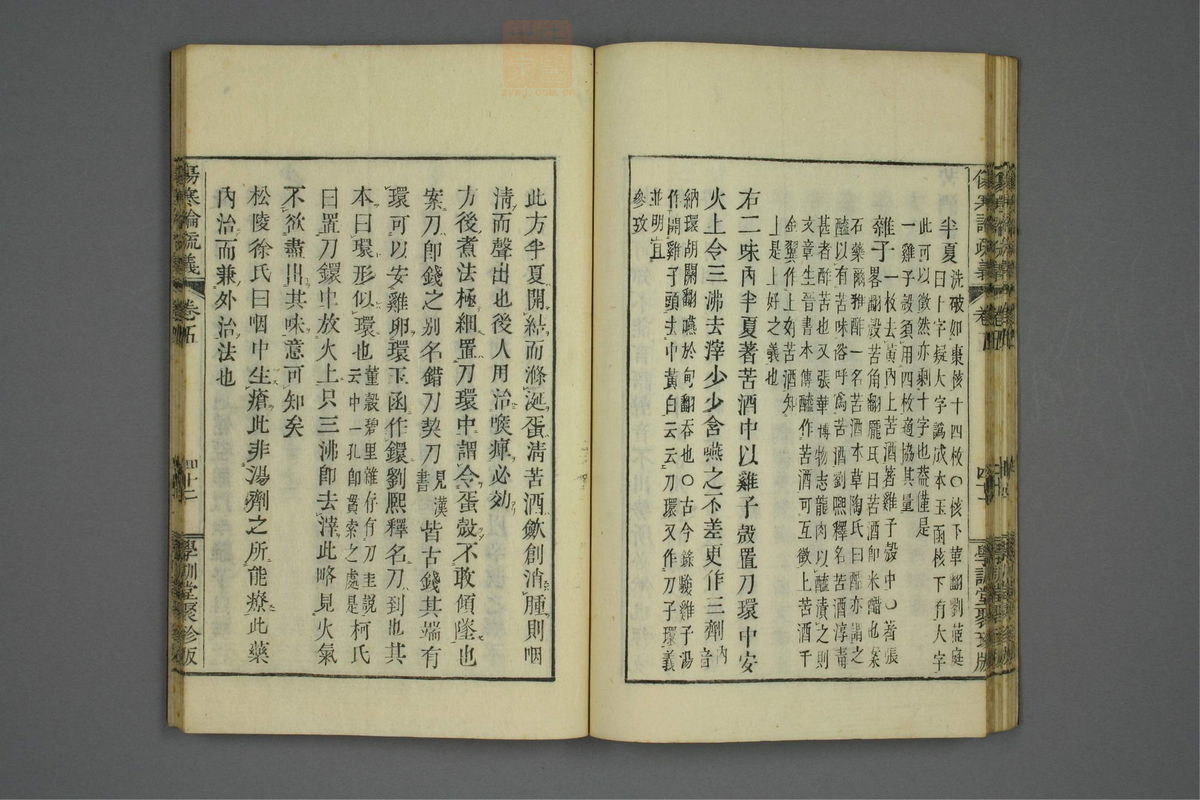 半夏洗破如棗核十四枚〇核下華翻劉茝庭
曰十字擬大字譌成本玉函核下有大字
此可以徵然亦剩十字也葢僅是
一雞子殼須用四枚適協其量
雞子一枚去黃內上苦酒著雞子殼中〇著張
畧翻設苦角翻龐氏曰苦酒卽米醋也案
石藥爾雅酢一名苦酒本草陶氏曰醯亦謂之
醯以有苦味俗呼爲苦酒劉熙釋名苦酒淳毒
甚者酢苦也又張華博物志龍肉以醯漬之則
文章生晉書本傳醯作苦酒可互徵上苦酒千
金翼作上好苦酒知
上是上好之義也
右二味內半夏著苦酒中以雞子殼置刀環中安
火上令三沸去滓少少含嚥之不差更作三劑內音
納環胡關翻嚥於甸翻吞也〇古今錄驗雞子湯
作開雞子頭去中黃白云云刀環又作刀子環義
並明宜
參攷
傷寒論疏義
卷五
四十二
學訓堂聚珍版
此方半夏開結而滌涎蛋清苦酒斂創消腫則咽
淸而聲出也後人用治喉痺必効
方後煮法極細置刀環中謂令蛋殼不敢傾墜也
案刀卽錢之別名錯刀契刀見漢書皆古錢其端有
環可以安雞卵環玉函作鐶劉熙釋名刀到也其
本曰環形似環也董穀碧里雜存有刀圭説柯氏云中一孔卽貫索之處是
曰置刀鐶中放火上只三沸卽去滓此略見火氣
不欲盡出其味意可知矣
松陵徐氏曰咽中生瘡此非湯劑之所能療此藥
內治而兼外治法也
傷寒論疏義
卷五
四十二
學訓堂聚珍版